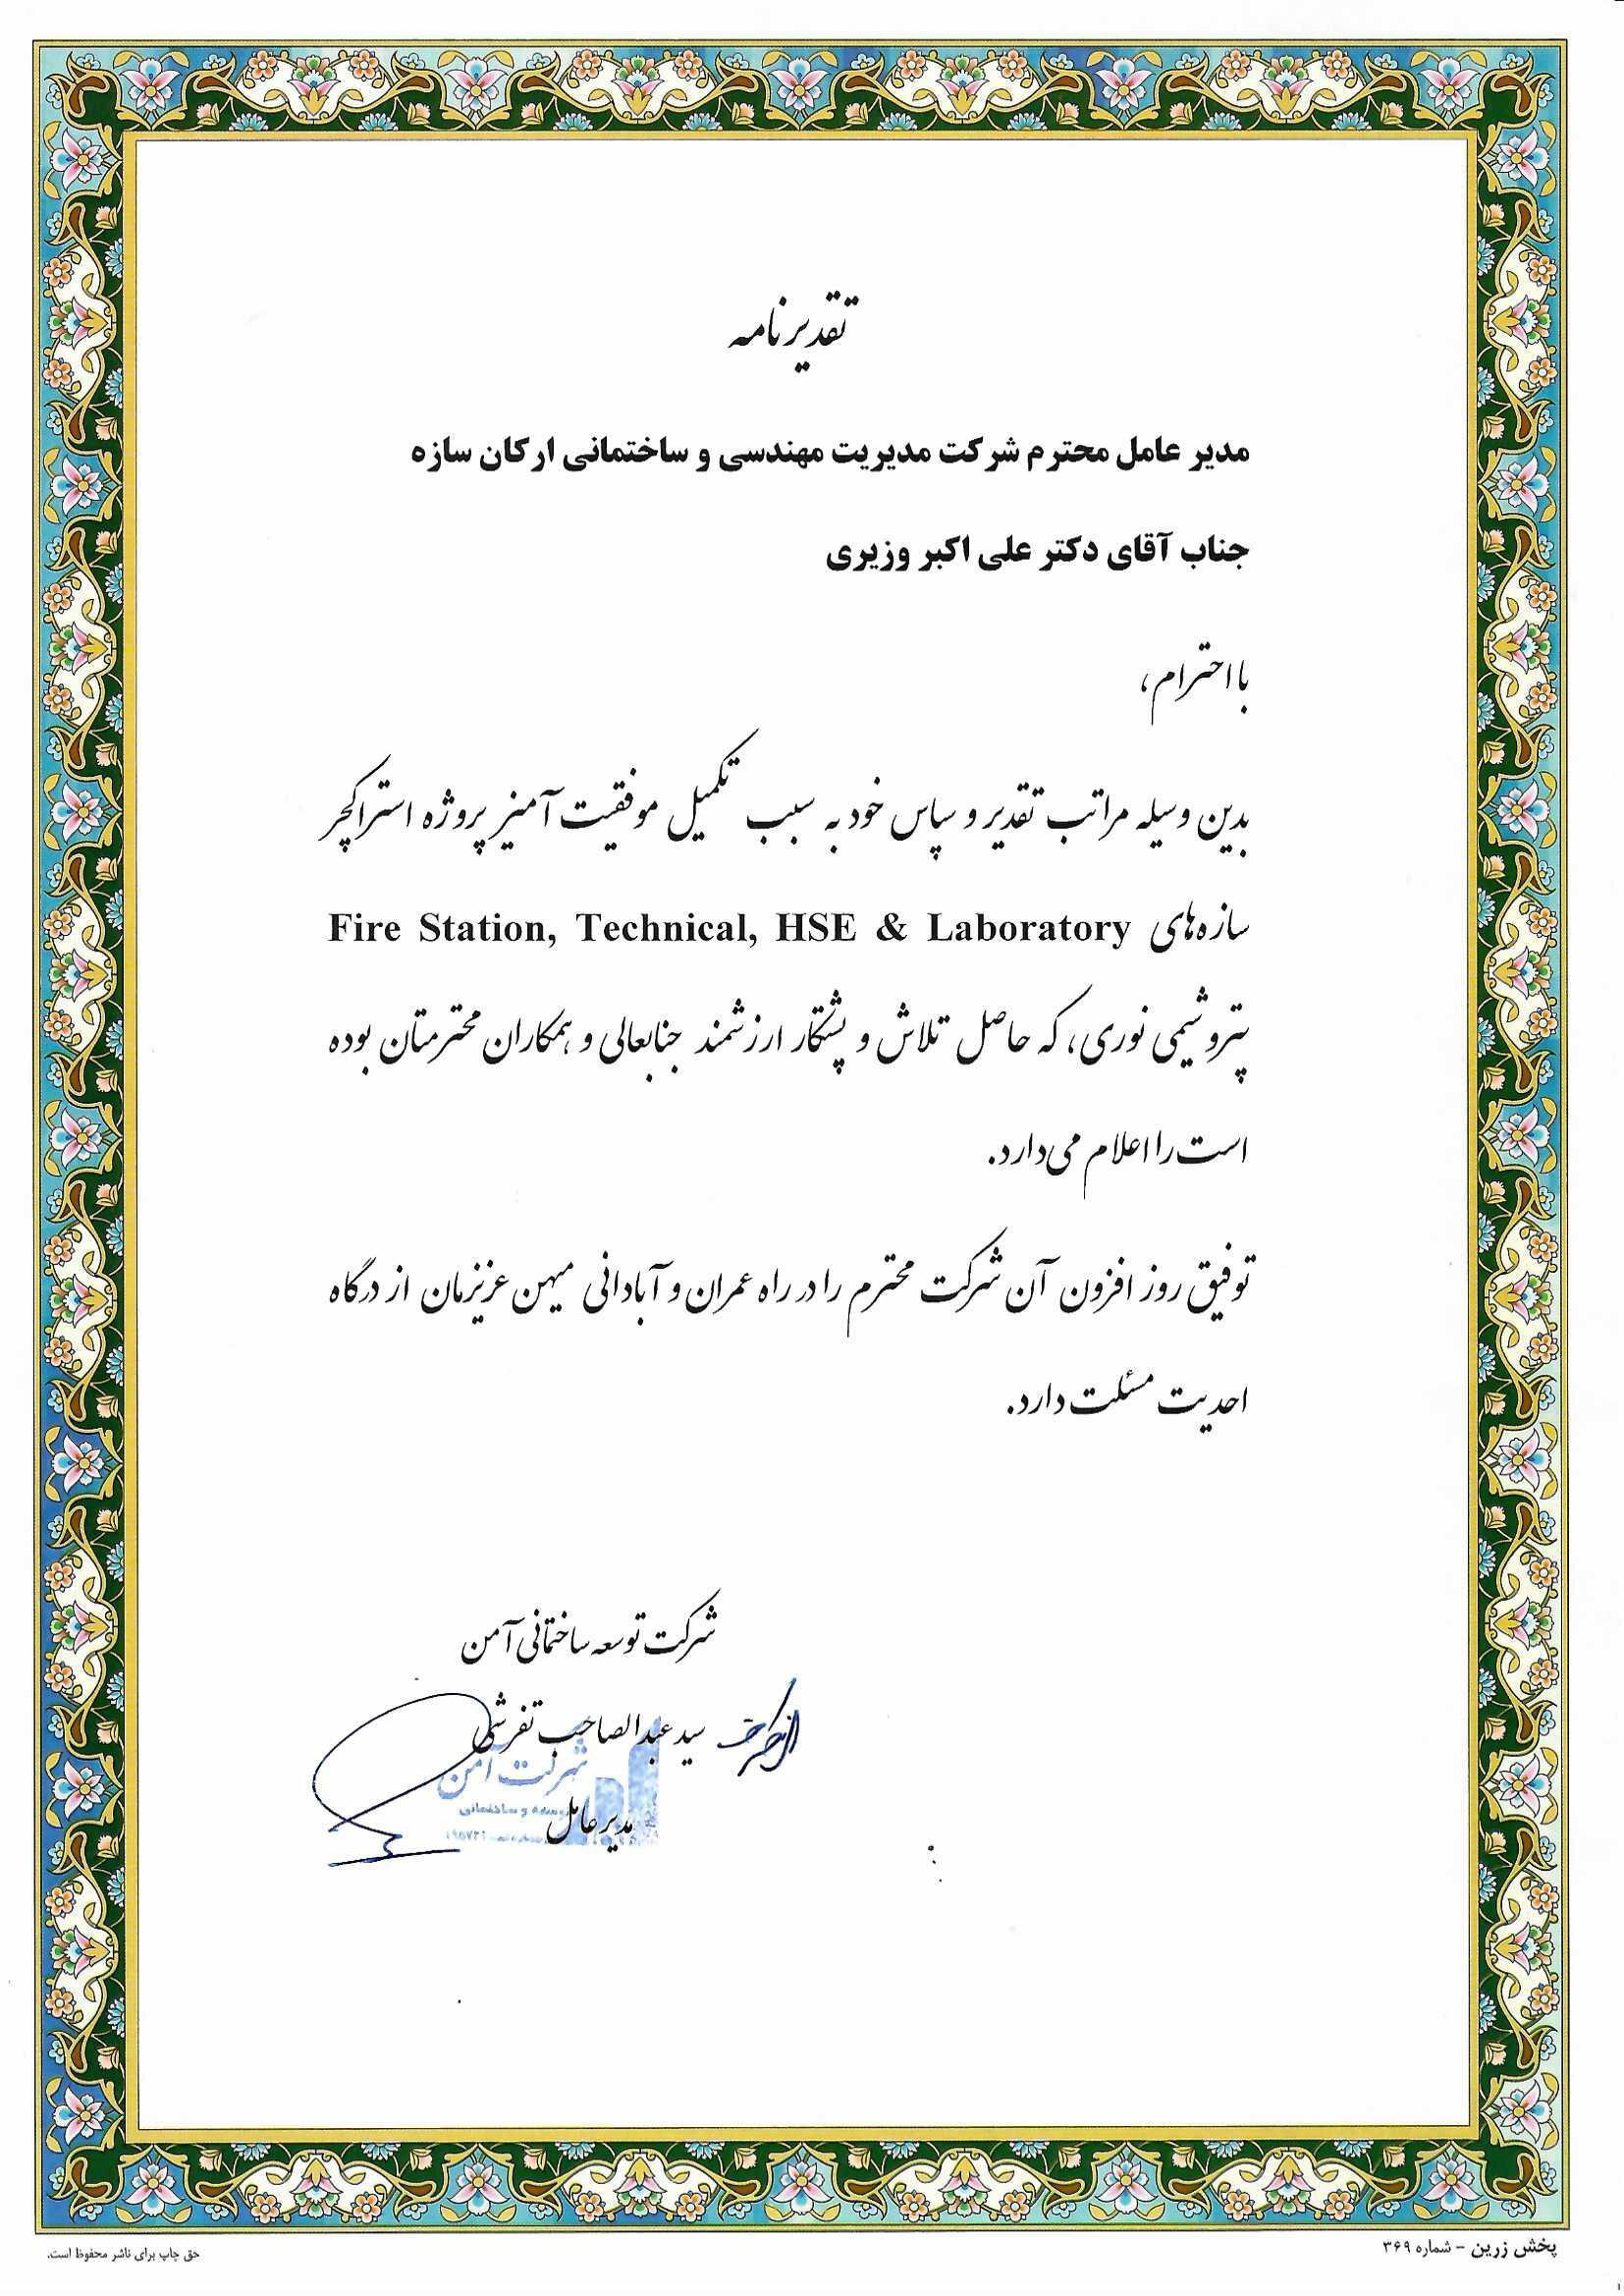 تقدیرنامه
مدیر عامل محترم شرکت مدیریت مهندسی و ساختمانی ارکان سازه
جناب آقای دکتر علی اکبر وزیری
با احترام،
بدین وسیله مراتب تقدیر و سپاس خود به سبب تکمیل موفقیت آمیز پروژه استراکچر
سازه‌های Fire Station, Technical, HSE & Laboratory
پتروشیمی نوری، که حاصل تلاش و پشتکار ارزشمند جنابعالی و همکاران محترمتان بوده
است را اعلام می‌دارد.
توفیق روز افزون آن شرکت محترم را در راه عمران و آبادانی میهن عزیزمان از درگاه
احدیت مسئلت دارد.
شرکت توسعه ساختمانی آمن
سید عبدالصاحب تفرشی
شرکت آمن
توسعه و ساختمانی
مدیر عامل
پخش زرین - شماره ۳۶۹
حق چاپ برای ناشر محفوظ است.